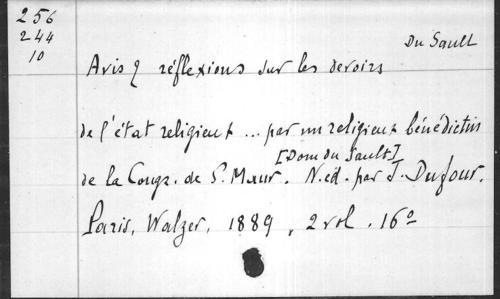 256
244
10
Du Sault
Avis & réflexions sur les devoirs
de l'état religieux ... par un religieux bénédictin
[Dom du Sault]
de la Congr. de S. Maur. N. éd. par J. Dufour.
Paris, Walzer, 1889, 2 vol. 16°